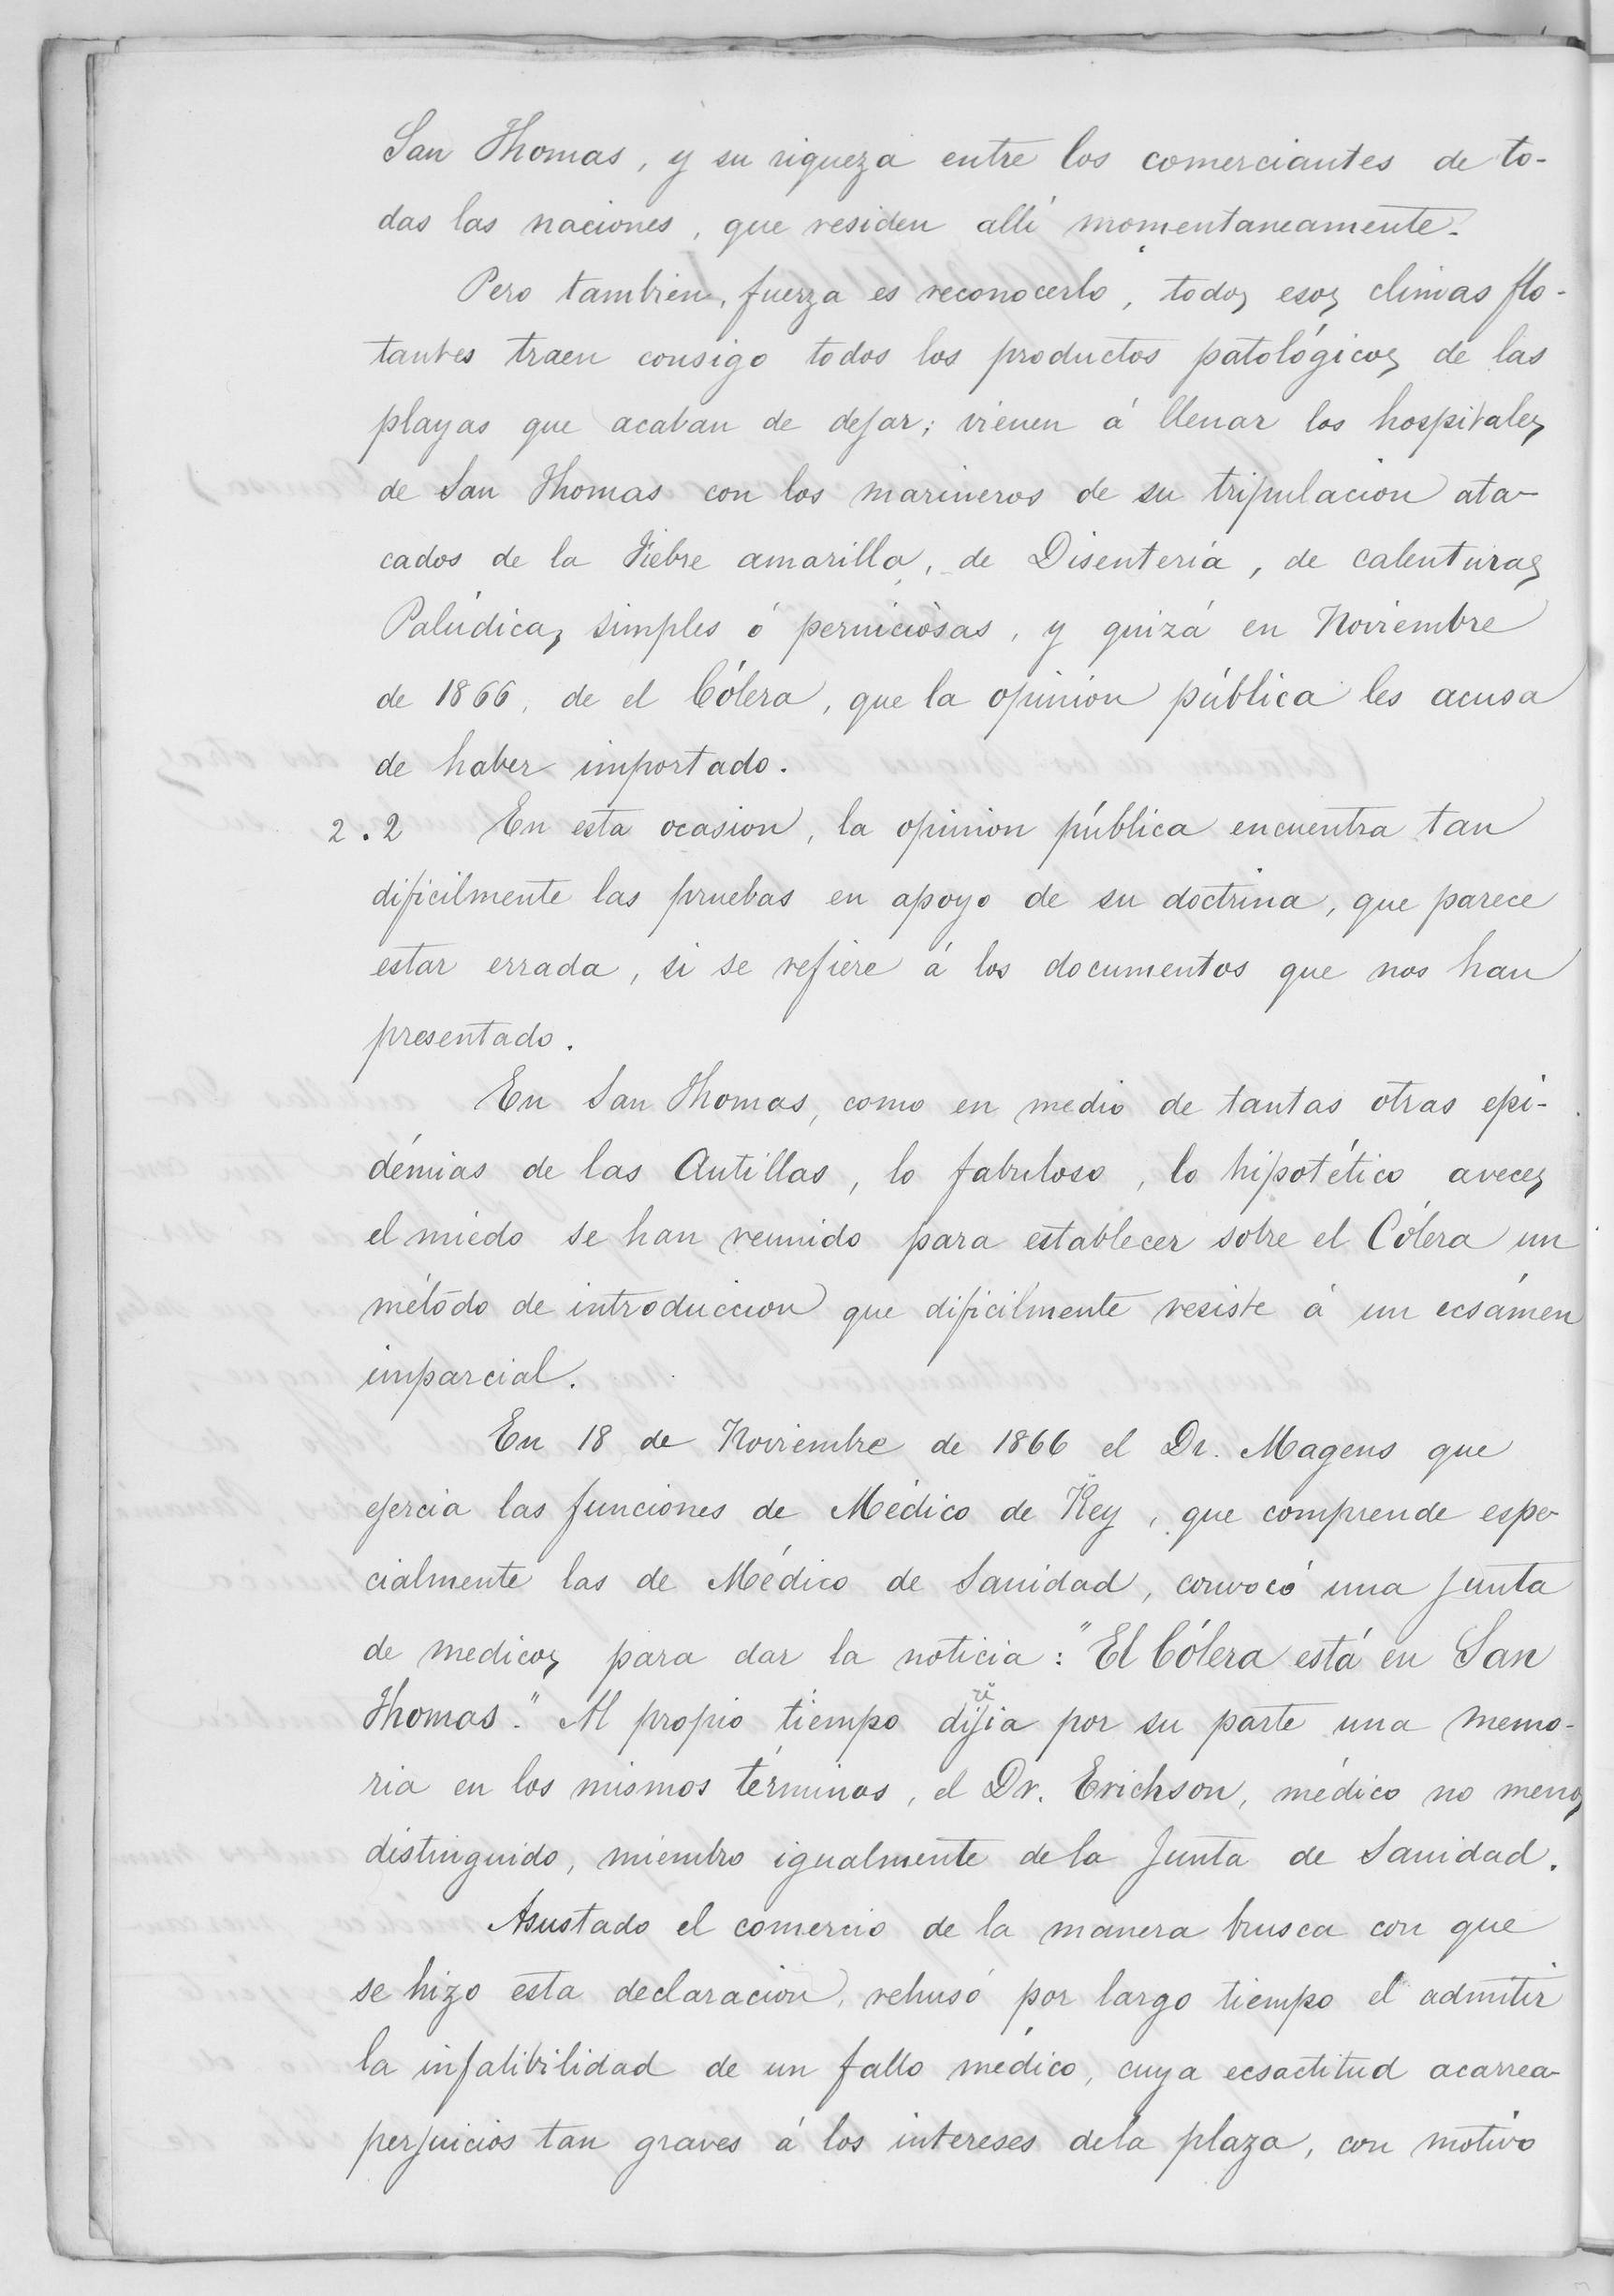 San Thomas, y su riqueza entre los comerciantes de to-
das las naciones, que residen allí momentaneamente.
Pero tambien, fuerza es reconocerlo, todos esos climas flo-
tantes traen consigo todos los productos patológicos de las
playas que acaban de dejar; vienen á llenar los hospitales
de San Thomas con los marineros de su tripulacion ata-
cados de la Fiebre amarilla, de Disentería, de calenturas
Palúdicas simples ó perniciosas, y quizá en Noviembre
de 1866, de el Cólera, que la opinion pública les acusa
de haber importado.
2.2 En esta ocasion, la opinion pública encuentra tan
dificilmente las pruebas en apoyo de su doctrina, que parece
estar errada, si se refiere á los documentos que nos han
presentado.
En San Thomas, como en medio de tantas otras epi-
démias de las Antillas, lo fabuloso, lo hipotético aveces
el miedo se han reunido para establecer sobre el Cólera un
método de introduccion que dificilmente resiste á un ecsámen
imparcial.
En 18 de Noviembre de 1866 el Dr. Magens que
ejercia las funciones de Médico de Rey, que comprende espe-
cialmente las de Médico de Sanidad, convocó una junta
de medicos para dar la noticia: "El Cólera está en San
Thomas." Al propio tiempo dijia por su parte una memo-
ria en los mismos términos, el Dr. Erichson, médico no menos
distinguido, miembro igualmente de la Junta de Sanidad.
Asustado el comercio de la manera brusca con que
se hizo esta declaracion, rehusó por largo tiempo el admitir
la infalibilidad de un fallo médico, cuya ecsactitud acarrea-
perjuicios tan graves á los intereses dela plaza, con motivo